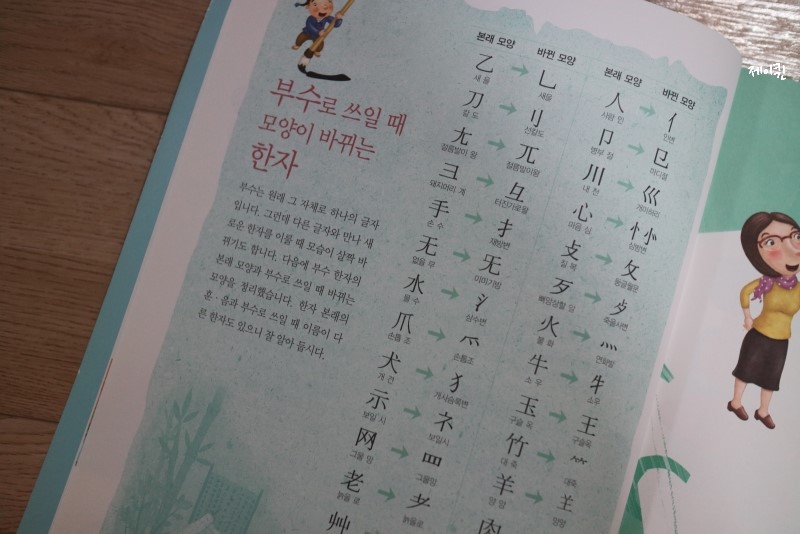 제이퀸
부수로 쓰일 때
모양이 바뀌는
한자
부수는 원래 그 자체로 하나의 글자
입니다. 그런데 다른 글자와 만나 새
로운 한자를 이룰 때 모습이 살짝 바
뀌기도 합니다. 다음에 부수 한자의
본래 모양과 부수로 쓰일 때 바뀌는
모양을 정리했습니다. 한자 본래의
훈·음과 부수로 쓰일 때 이름이 다
른 한자도 있으니 잘 알아 둡시다.
본래 모양 바뀐 모양
乙 → 乚
새 을 새을
刀 → 刂
칼 도 선칼도
尢 → 兀
절름발이 왕 절름발이왕
彐 → 彑
돼지머리 계 터진가로왈
手 → 扌
손 수 재방변
无 → 旡
없을 무 이미기방
水 → 氵
물 수 삼수변
爪 → 爫
손톱 조 손톱조
犬 → 犭
개 견 개사슴록변
示 → 礻
보일 시 보일시
网 → 罒
그물 망 그물망
老 → 耂
늙을 로 늙을로
艸
본래 모양 바뀐 모양
人 → 亻
사람 인 인변
卩 → 㔾
병부 절 마디절
川 → 巛
내 천 개미허리
心 → 忄㣺
마음 심 심방변
攴 → 攵
칠 복 등글월문
歹 → 歺
뼈앙상할 알 죽을사변
火 → 灬
불 화 연화발
牛 → 牜
소 우 소우
玉 → 王
구슬 옥 구슬옥
竹 → 𥫗
대 죽 대죽
羊 → ⺶
양 양 양양
肉